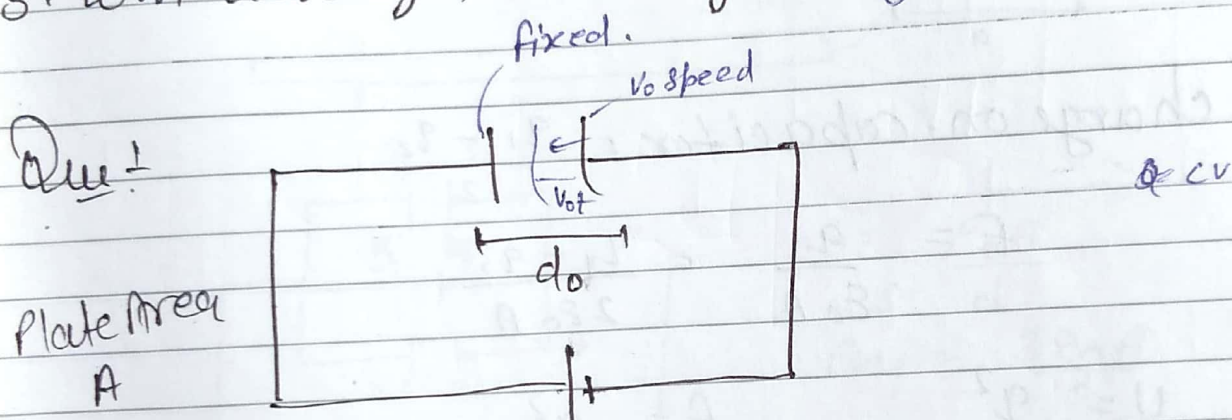 fixed.
v₀ speed
Que:
v₀t
Q= CV
d₀
Plate Area
A